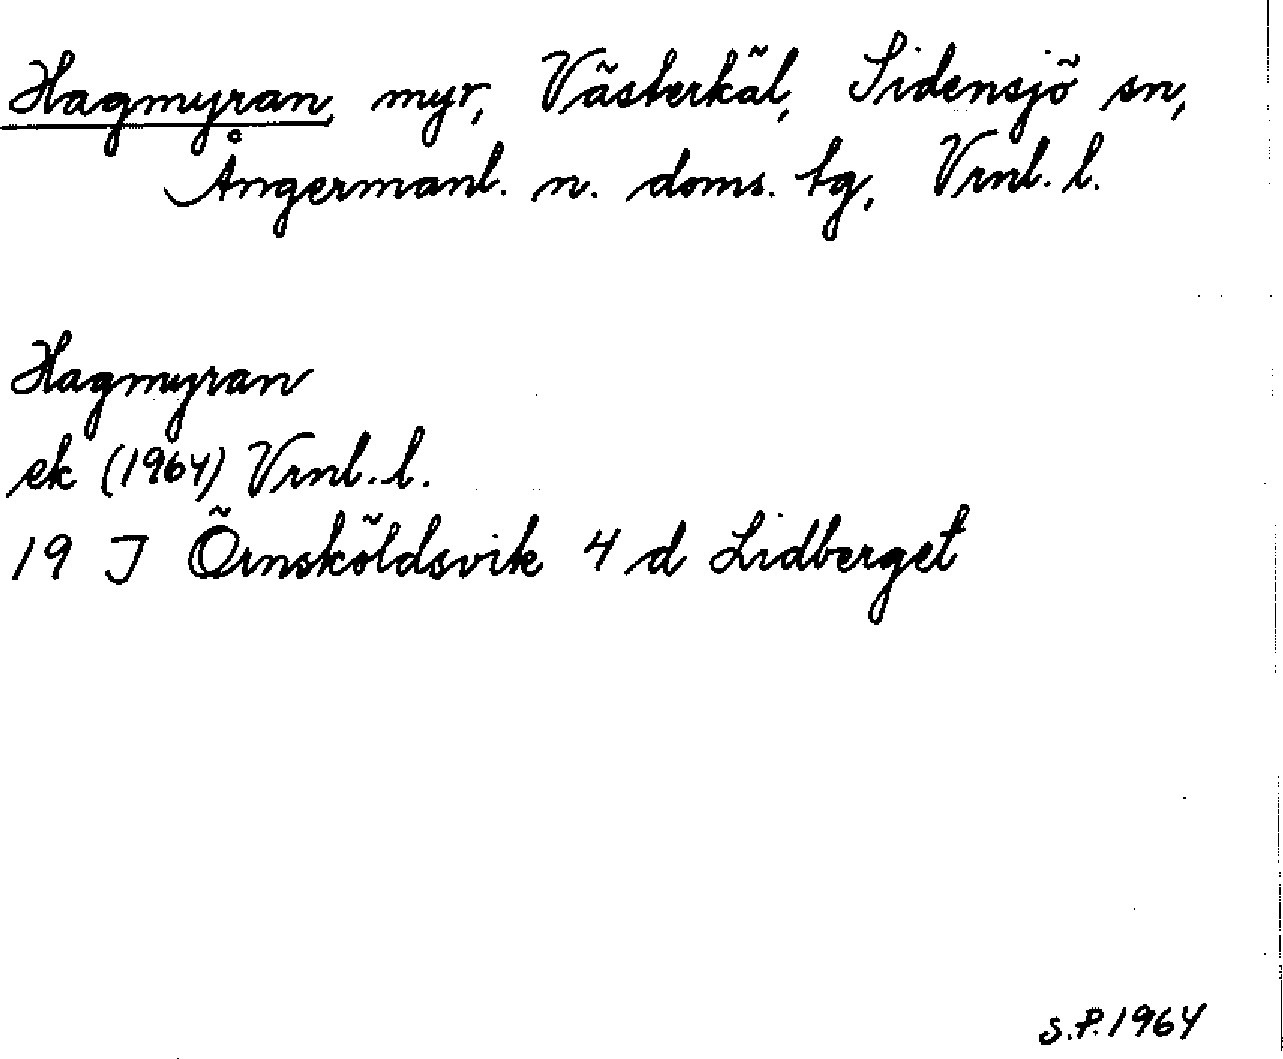 Hagmyran, myr, Västerkäl, Sidensjö sn,
Ångermanl. n. doms. tg, Vrnl. l.
Hagmyran
ek (1964) Vrnl. l.
19 J Örnsköldsvik 4 d Lidberget
S.P. 1964